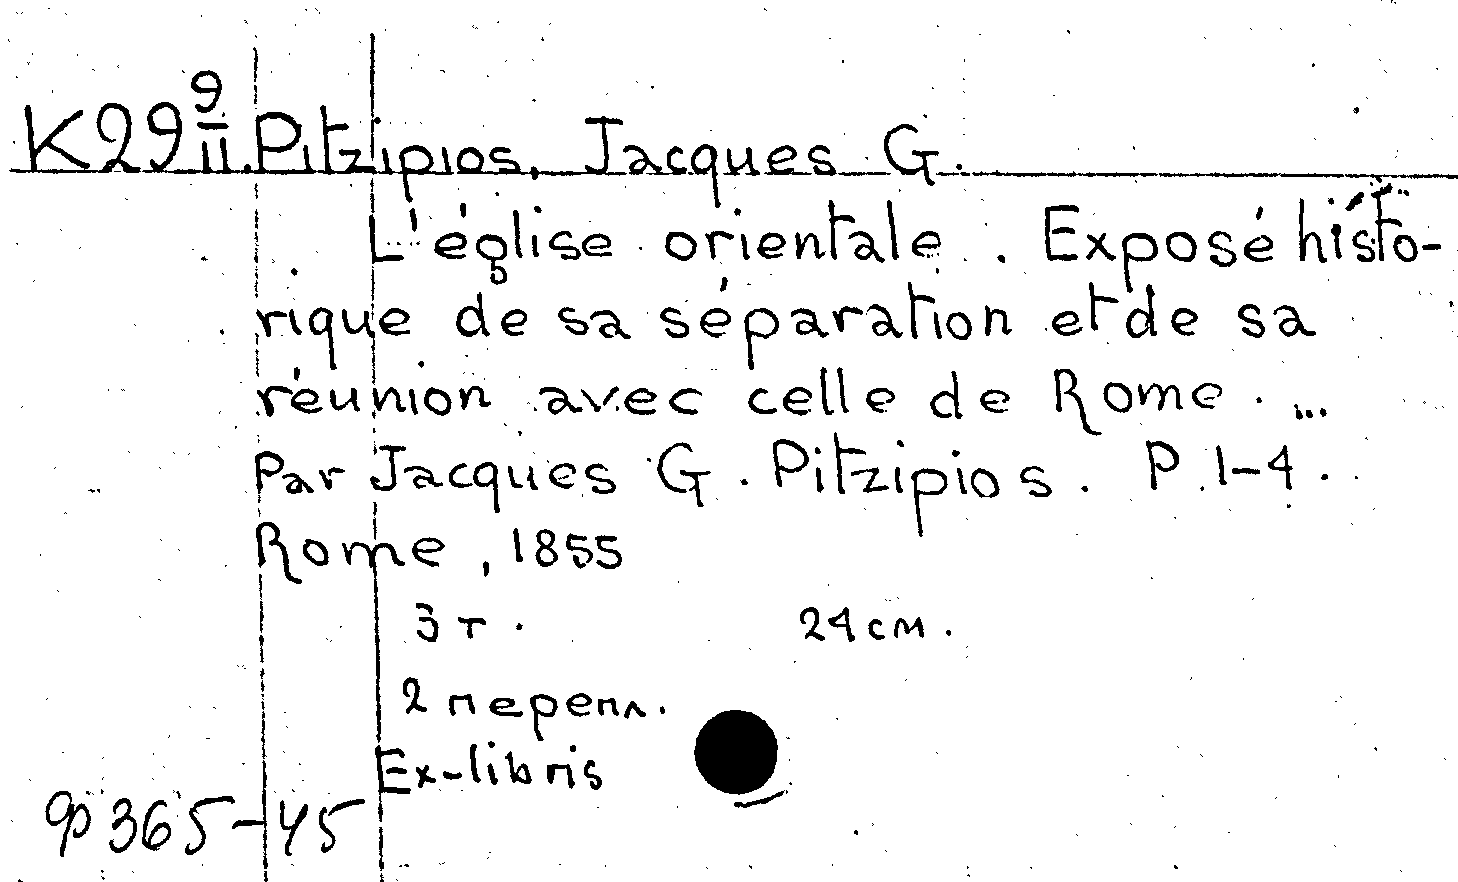 K29 9/II Pitzipios, Jacques G.
L'église orientale. Exposé histo-
rique de sa séparation et de sa
réunion avec celle de Rome. ...
Par Jacques G. Pitzipios. P. 1-4.
Rome, 1855
3 т. 24 см.
2 перепл.
Ex-libris
Ф 365-45